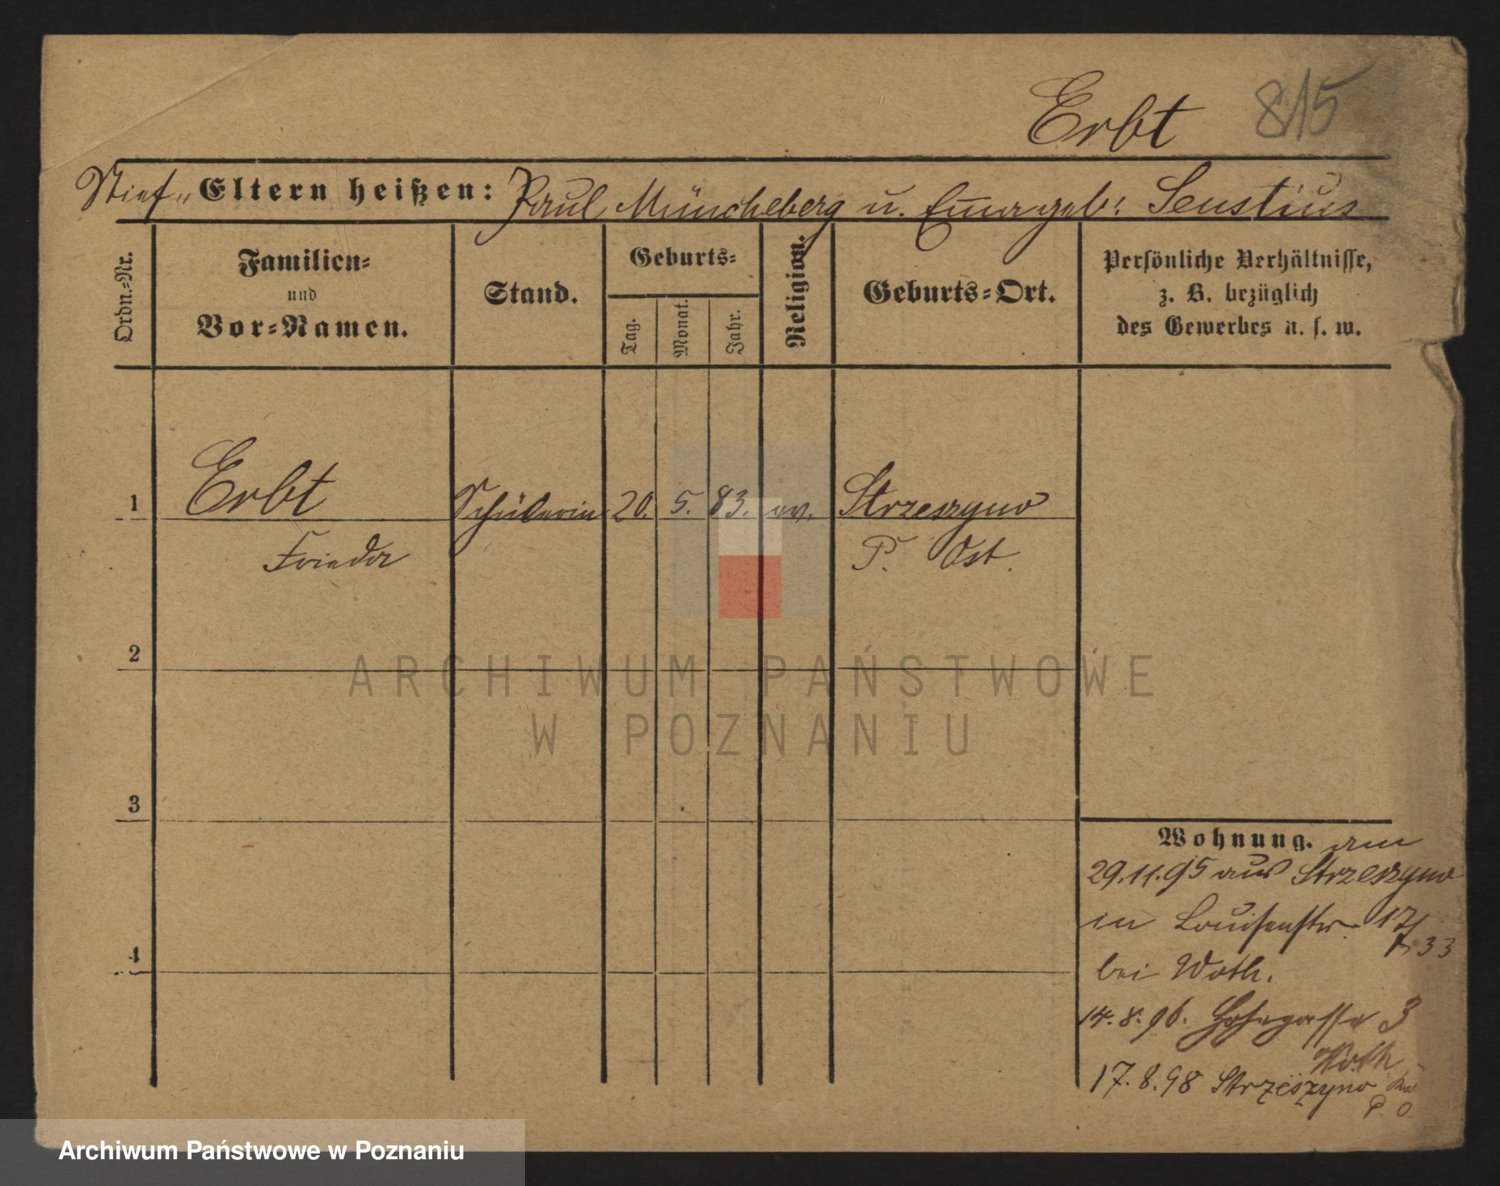 Erbt 815
Stief- Eltern heißen: Paul Müncheberg u. Emma geb: Senstius
Ordn.-Nr.
Familien-
und
Vor-Namen.
Stand.
Geburts-
Tag.
Monat.
Jahr.
Religion.
Geburts-Ort.
Persönliche Verhältnisse,
z. B. bezüglich
des Gewerbes u. s. w.
1 Erbt Schülerin 20. 5. 83. ev. Strzeszyno
Frieda P. Ost.
2
3
4
Wohnung. am
29.11.95 aus Strzeszyno
in Louisenstr. 17/
33
bei Woth.
14.8.96. Hohegasse 3
Woth
17.8.98 Strzeszyno
P. O.
ARCHIWUM PAŃSTWOWE
W POZNANIU
Archiwum Państwowe w Poznaniu